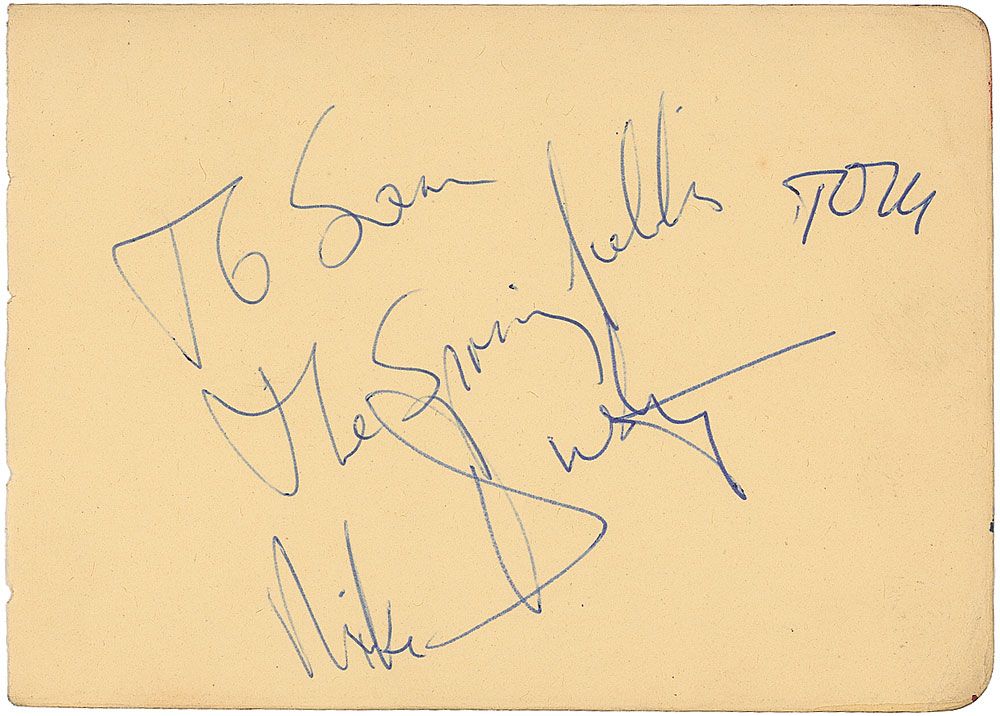 To Sean
TOM
The Springfields
Dusty
Mike